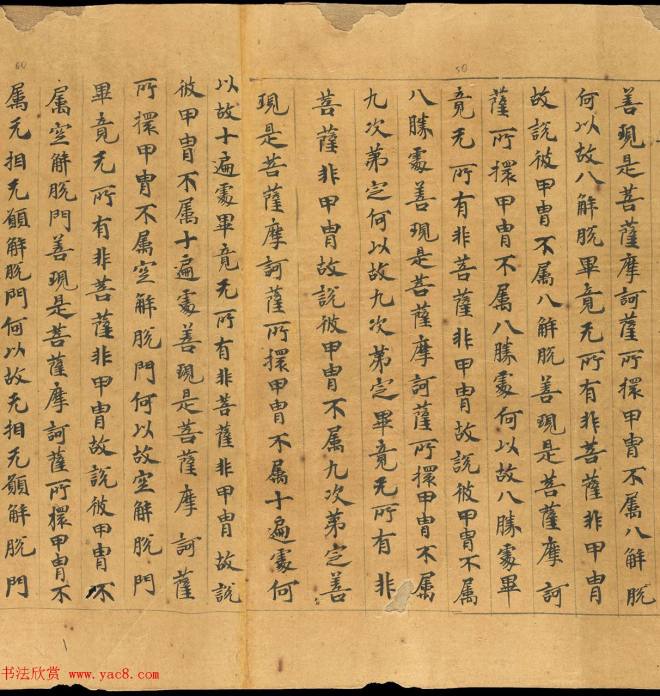 善現是菩薩摩訶薩所擐甲冑不属八解脫
何以故八解脫畢竟无所有非菩薩非甲冑
故說彼甲冑不属八解脫善現是菩薩摩訶
薩所擐甲冑不属八勝處何以故八勝處畢
竟无所有非菩薩非甲冑故說彼甲冑不属
八勝處善現是菩薩摩訶薩所擐甲冑不属
九次第定何以故九次第定畢竟无所有非
菩薩非甲冑故說彼甲冑不属九次第定善
現是菩薩摩訶薩所擐甲冑不属十遍處何
以故十遍處畢竟无所有非菩薩非甲冑故說
彼甲冑不属十遍處善現是菩薩摩訶薩
所擐甲冑不属空解脫門何以故空解脫門
畢竟无所有非菩薩非甲冑故說彼甲冑不
属空解脫門善現是菩薩摩訶薩所擐甲冑不
属无相无願解脫門何以故无相无願解脫門
50
60
书法欣赏 www.yac8.com